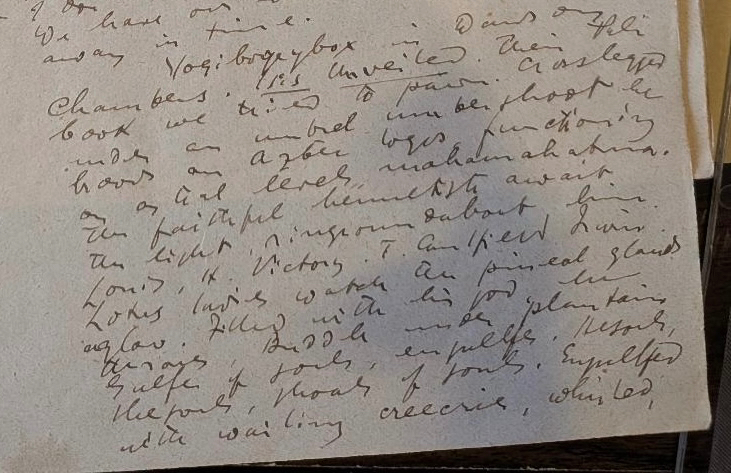 We have our
away in time.
Yogibogeybox in
chambers. Isis Unveiled. Their Pali
book we tried to pawn. Crosslegged
under an umbrel umbershoot he
broods an Aztec logos, functioning
on astral levels, mahamahatma.
The faithful hermetists await
the light, ringroundabout him.
Louis, H. Victory. T. Caulfield Irwin.
Lotus ladies watch the pineal glands
aglow. Filled with his god he
thrones, Buddh under plantain
Gulfer of souls, engulfer. Hesouls,
shesouls, shoals of souls. Engulfed
with wailing creecries, whirled,